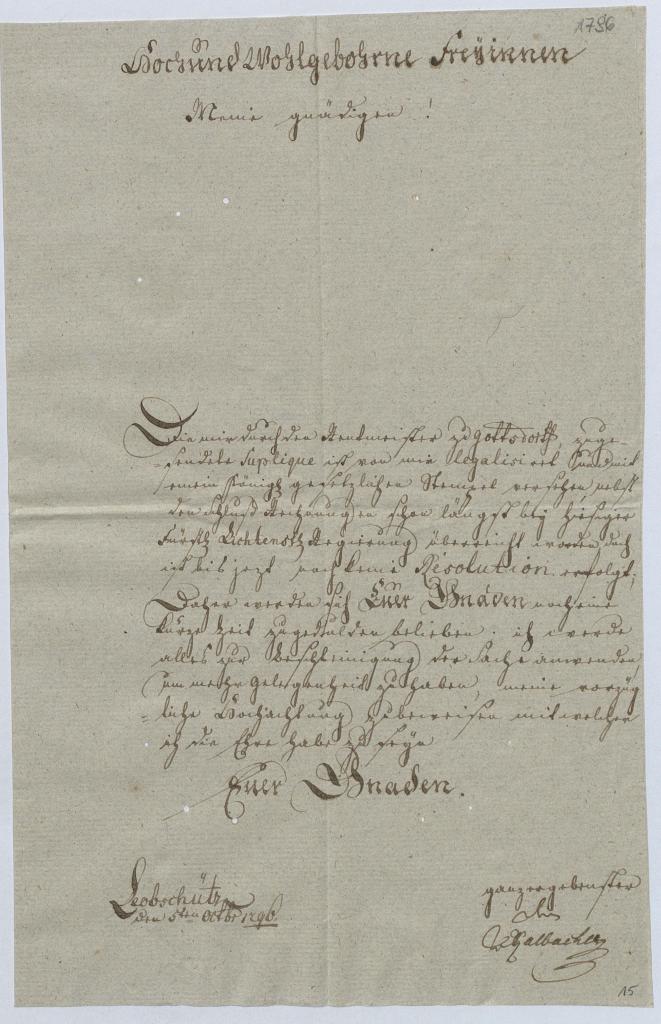 1796
Hoch und Wohlgebohrne Freÿinnen
Meine gnädigen!
Die mir durch den Rentmeister zu Gottsdorff, zuge-
-sendete Suplique ist von mir legalisiret und mit
einem Königl gesetzlichen Stempel versehen, nebst
den Schluß Rechnungen schon längst beÿ hiesiger
Fürstl Lichtenst Regierung überreicht worden, doch
ist bis jezt noch keine Resolution erfolgt;
Daher werden sich Euer Gnaden noch eine
kurze Zeit zu gedulden belieben. ich werde
alles zur beschleinigung der Sache anwenden,
um mehr Gelegenheit zu haben, meine vorzüg
-liche Hochachtung zu beweisen mit welcher
ich die Ehre habe zu seÿn
Euer Gnaden.
Leobschütz
den 5ten Octbr 1796
ganz ergebenster
15